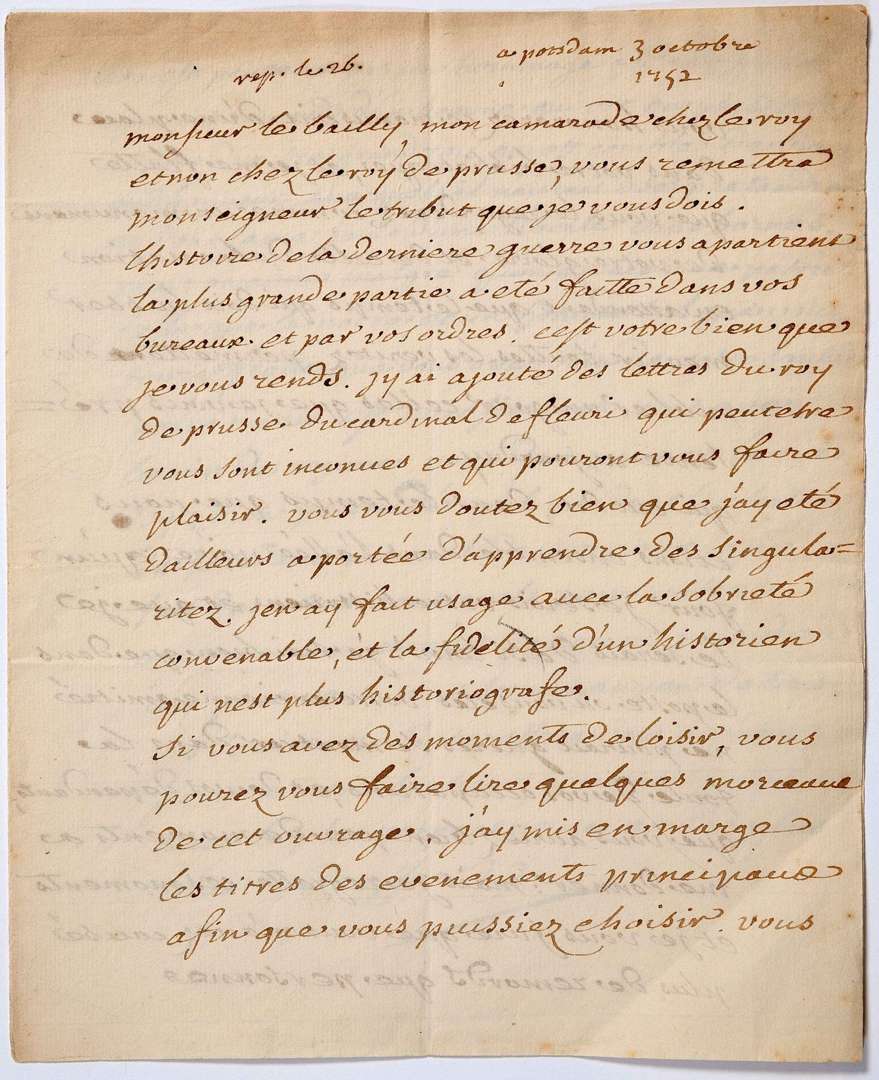 a potsdam 3 octobre
1752
rep. le 26.
monsieur le bailly, mon camarade chez le roy
et non chez le roy de prusse, vous remettra
monseigneur le tribut que je vous dois.
lhistoire de la derniere guerre vous apartient
la plus grande partie a eté faitte dans vos
bureaux et par vos ordres. cest votre bien que
je vous rends. jy ai ajouté des lettres du roy
de prusse du cardinal de fleuri qui peutetre
vous sont inconues et qui pouront vous faire
plaisir. vous vous doutez bien que j'ay eté
dailleurs a portée d'apprendre des singula=
ritez. jen ay fait usage avec la sobrieté
convenable, et la fidelité d'un historien
qui nest plus historiografe.
si vous avez des moments de loisir, vous
pourez vous faire lire quelques morceaux
de cet ouvrage. j'ay mis en marge
les titres des evenements principaux
afin que vous puissiez choisir. vous